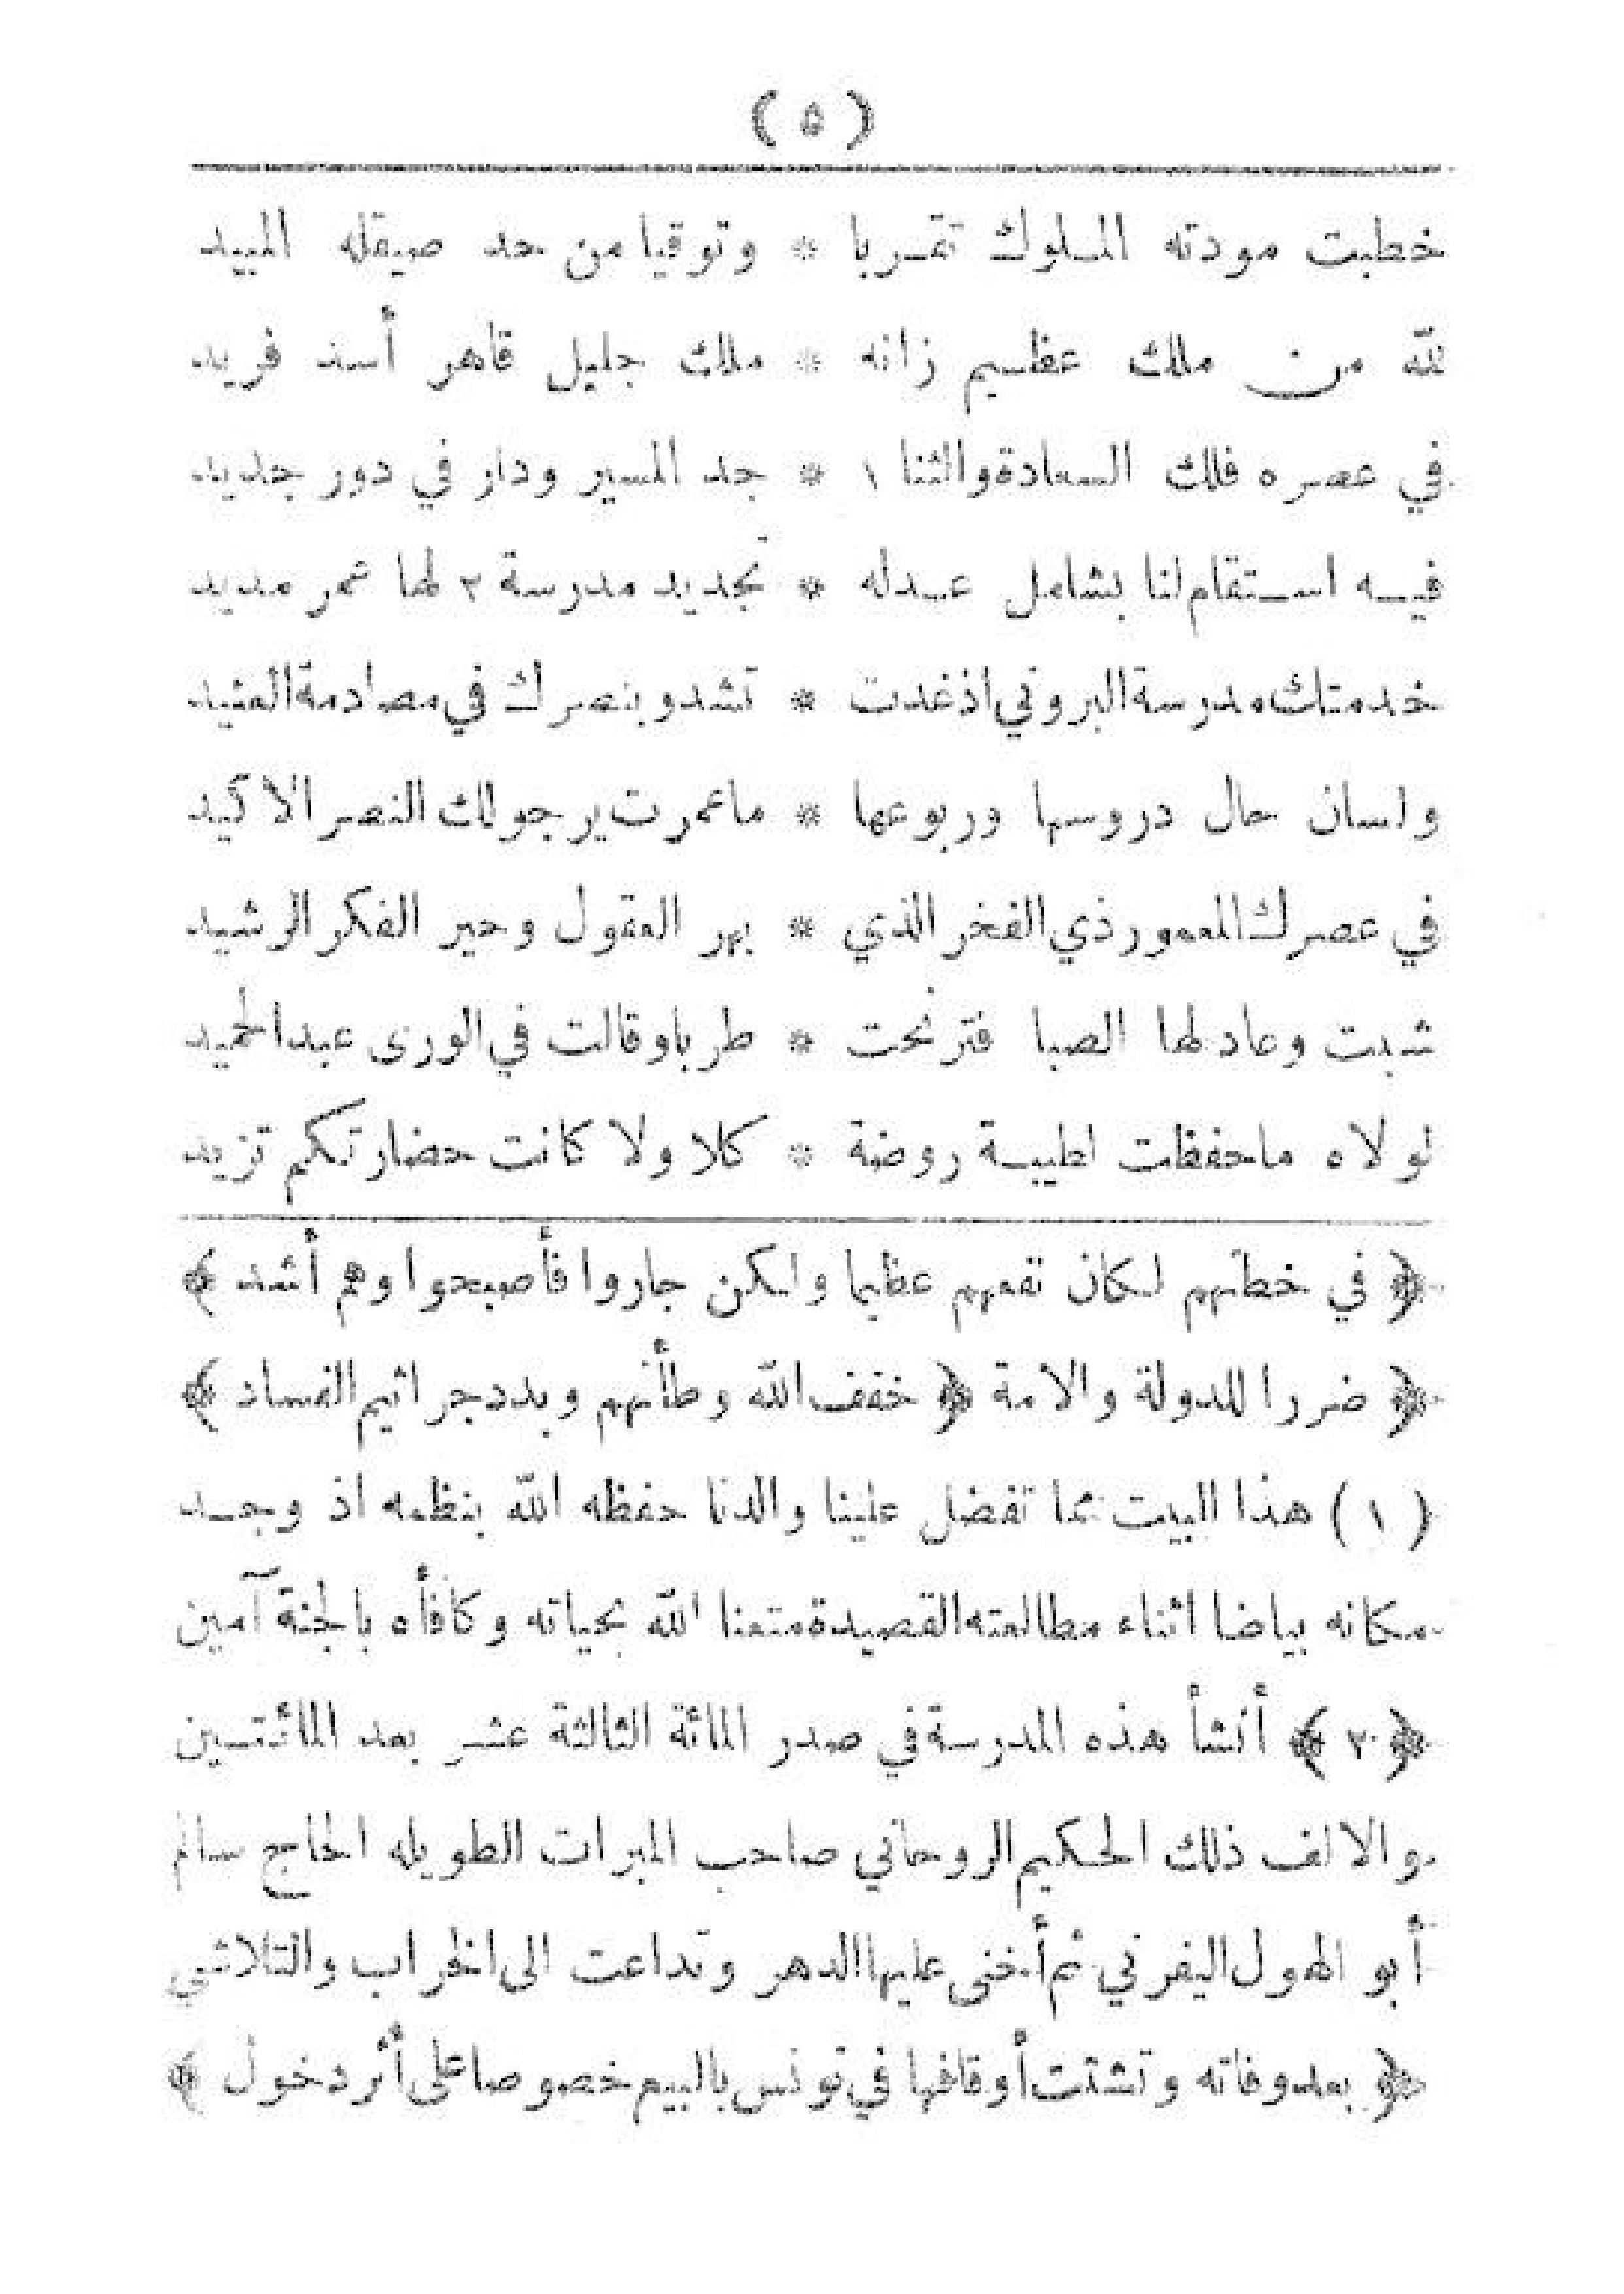 ( ٥ )
خطبت مودته الملوك تقربا * وتوقيا من حد صيقله المبيد
لله من ملك عظيم زانه * ملك جليل قاهر أسد فريد
في عصره فلك السعادة والثنا ١ * جد المسير ودار في دور جديد
فيه استقام لنا بشامل عدله * تجديد مدرسة ٢ لها عمر مديد
خدمتك مدرسة البروني اذ غدت * تشدو بنصرك في مصادمة العنيد
ولسان حال دروسها وربوعها * ما عمرت يرجو لك النصر الاكيد
في عصرك المعمور ذي الفخر الذي * بهر العقول وحير الفكر الرشيد
شبت وعاد لها الصبا فترنحت * طربا وقالت في الورى عبد الحميد
لولاه ما حفظت لطيبة روضة * كلا ولا كانت حضارتكم تزيد
﴿ في خطتهم لكان نفعهم عظيما ولكن جاروا فأصبحوا وهم أشد ﴾
﴿ ضررا للدولة والامة ﴿ خفف الله وطأتهم وبدد جراثيم الفساد ﴾
( ١ ) هذا البيت مما تفضل علينا والدنا حفظه الله بنظمه اذ وجد
مكانه بياضا اثناء مطالعته القصيدة متعنا الله بحياته وكافأه بالجنة آمين
﴿ ٢ ﴾ أنشأ هذه المدرسة في صدر المائة الثالثة عشر بعد المائتين
والالف ذلك الحكيم الروحاني صاحب المبرات الطويله الحاج سالم
أبو الهول اليفرني ثم أخنى عليها الدهر وتداعت الى الخراب والتلاشي
﴿ بعد وفاته وتشتت أوقافها في تونس بالبيع خصوصا على أثر دخول ﴾